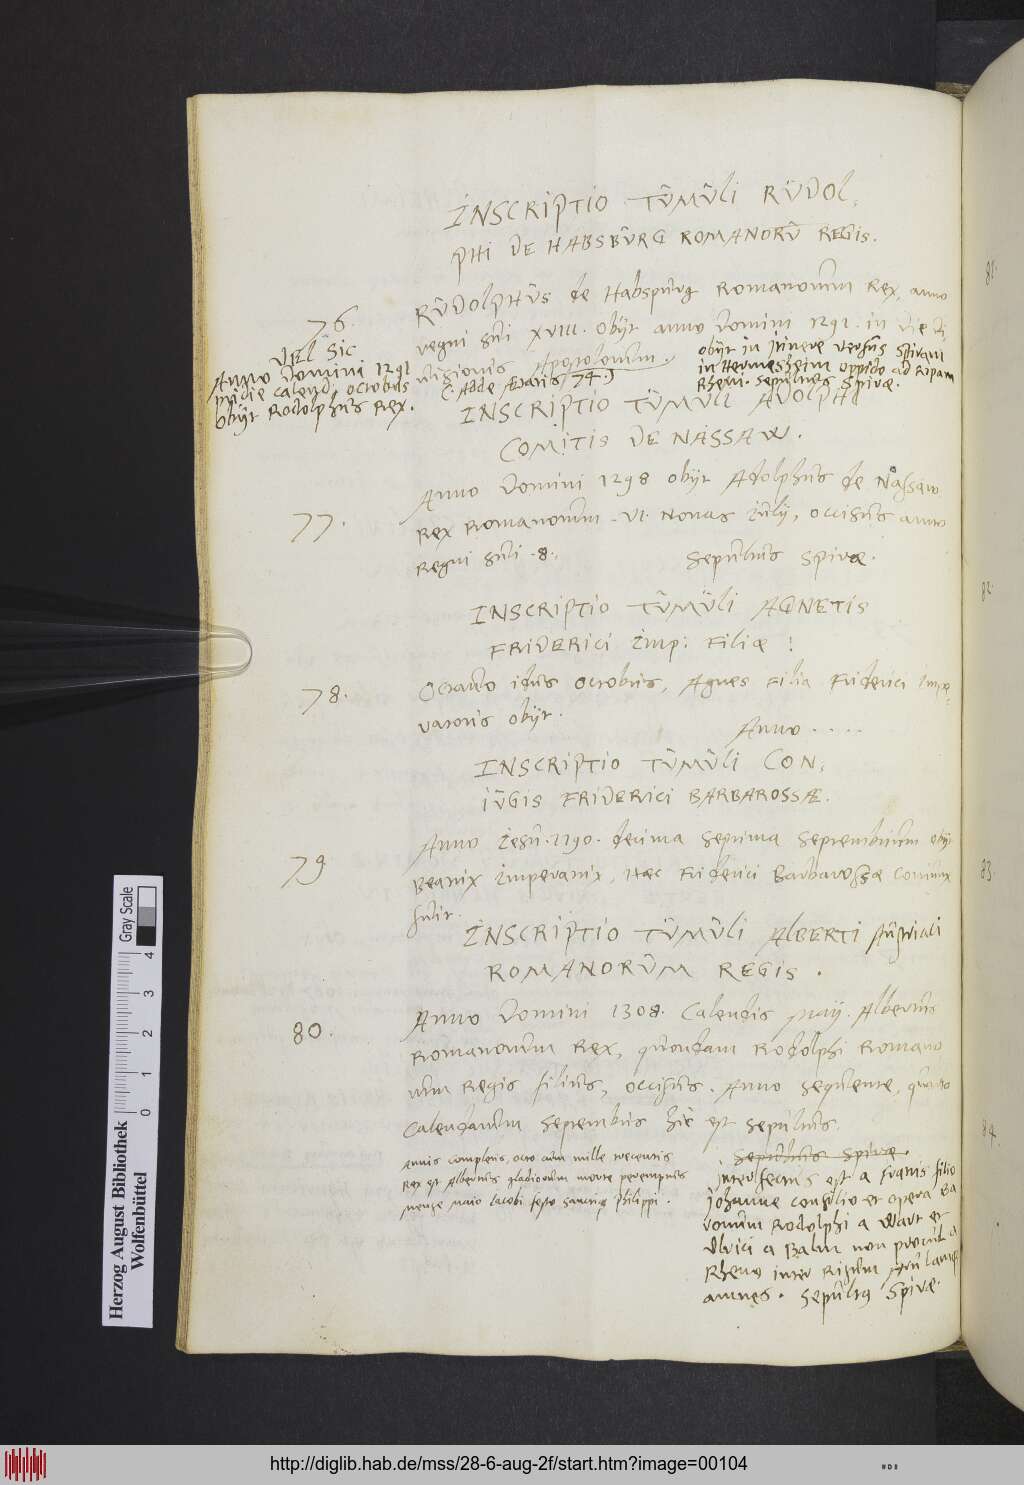 INSCRIPTIO TŮMŮLI RŮDOL,
PHI DE HABSBŮRG ROMANORŪ REGIS.
76.
RŮDOLPHŮS de Habspůrg Romanorům Rex, anno
regni sůi XVIII. obijt anno Domini 1291. in die Di,
uisionis Apostolorům.
(: Adde Ætatis 74 :)
obijt in itinere versůs Spiram
in Hermesheim oppido ad ripam
Rheni. sepůltůs Spiræ.
Vel Sic
Anno Domini 1291
pridie Calend. octobris
obijt Rodolphůs Rex.
INSCRIPTIO TŮMŮLI ADOLPHI
COMITIS DE NASSAW.
77.
Anno Domini 1298 obijt Adolphůs de Nassaw
Rex Romanorům. VI. Nonas Iůlij, occisůs anno
Regni sůi .8.
Sepůltůs Spiræ.
INSCRIPTIO TŮMŮLI AGNETIS
FRIDERICI Imp: FILIÆ
78.
Octauo idůs octobris, Agnes filia Friderici Impe,
ratoris obijt.
Anno . . . .
INSCRIPTIO TŮMŮLI CON,
IŮGIS FRIDERICI BARBAROSSÆ.
79
Anno Iesů. 1190. decima septima Septembriům obijt
Beatrix Imperatrix, Hæc Friderici Barbarossæ coniůnx
fůit.
INSCRIPTIO TŮMŮLI ALBERTI Aůstriaci
ROMANORŮM REGIS.
80.
Anno Domini 1308. Calendis Maij. Albertůs
Romanorům Rex, qůondam Rodolphi Romano
rům Regis filiůs, occisůs. Anno seqůente, qůarto
Calendarům Septembris hic est sepůltůs.
Annis completis, octo cům mille trecentis
Rex est Albertůs gladiorům morte peremptůs
Mense Maio Iacobi festo sanctiqꝫ Philippi.
Sepůltůs Spiræ.
interfectůs est a fratris filio
Johanne consilio et opera Ba
ronům Rodolphi a Wart et
Vlrici a Balm non procůl a
Rheno inter
amnes. sepůltꝰ Spiræ.
81.
82.
83.
84
Herzog August Bibliothek
Wolfenbüttel
Gray Scale
0 1 2 3 4
http://diglib.hab.de/mss/28-6-aug-2f/start.htm?image=00104